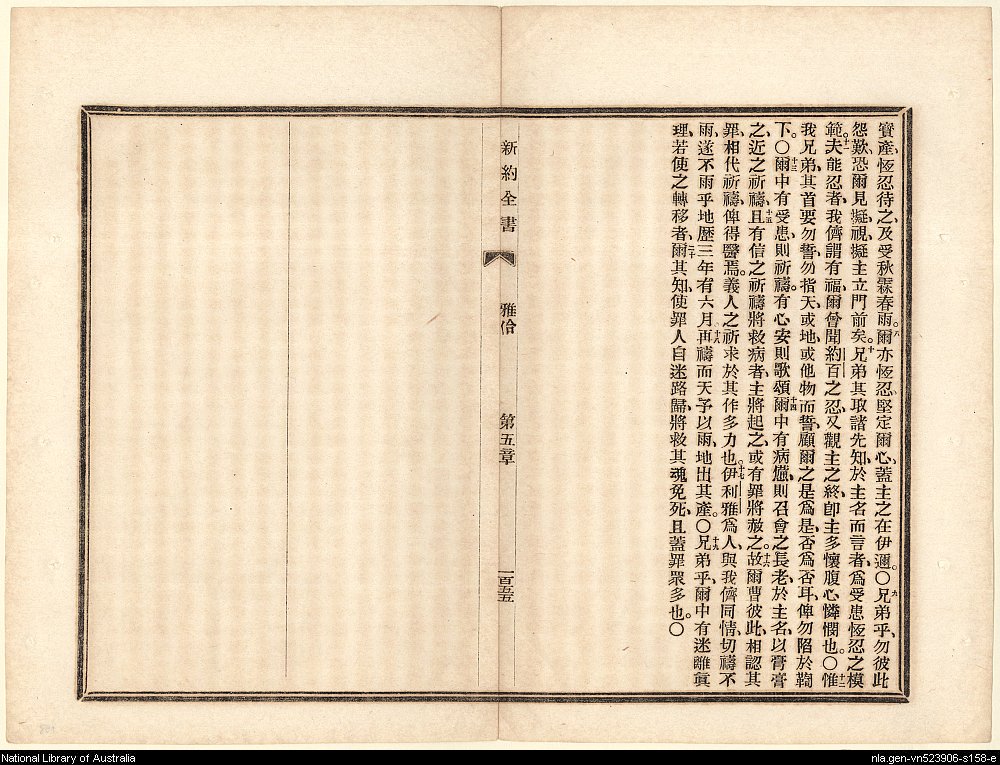 寶產、恆忍待之、及受秋霖春雨。八爾亦恆忍、堅定爾心、蓋主之在伊邇。〇九兄弟乎、勿彼此
怨歎、恐爾見擬、視擬主立門前矣。十兄弟其取諸先知、於主名而言者、為受患恆忍之模
範。十一夫能忍者、我儕謂有福、爾曾聞約百之忍、又觀主之終、卽主多懷腹心憐憫也。〇十二惟
我兄弟其首要勿誓、勿指天、或地、或他物而誓、顧爾之是為是、否為否耳、俾勿陷於鞫
下。〇十三爾中有受患、則祈禱。有心安則歌頌。十四爾中有病憊、則召會之長老、於主名、以膏膏
之、近之祈禱、十五且有信之祈禱將救病者、主將起之、或有罪將赦之。十六故爾曹彼此相認其
罪、相代祈禱、俾得醫焉。義人之祈求於其作多力也。十七伊利雅為人、與我儕同情、切禱不
雨、遂不雨乎地歷三年有六月。十八再禱而天予以雨、地出其產。〇十九兄弟乎、爾中有迷離眞
理、若使之轉移者、二十爾其知、使罪人自迷路歸、將救其魂免死、且蓋罪眾多也。〇
新約全書
雅佮
第五章
一百五五
National Library of Australia
nla.gen-vn523906-s158-e